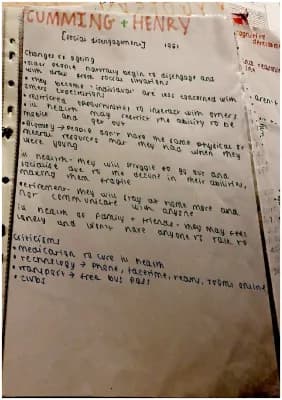 CUMMING + HENRY
[social disengagement] 1961
Changes to ageing
• older people naturally begin to disengage and
with draw from social situations
• they become individual are less concerned with
others expectations
• restricted opportunities to interact with others
• ill health → may restrict the ability to be
mobile and get out
• biology → people don't have the same physical or
mental resources that they had when they
were young
ill health - they will struggle to go out and
socialise due to the decline in their abilities,
making them fragile
retirement - they will stay at home more and
not communicate with anyone
ill health of family + friends - they may feel
lonely and won't have anyone to talk to
Criticisms
• medication to cure ill health
• technology → phone, facetime, teams, zooms online
• transport → free bus pass
• clubs